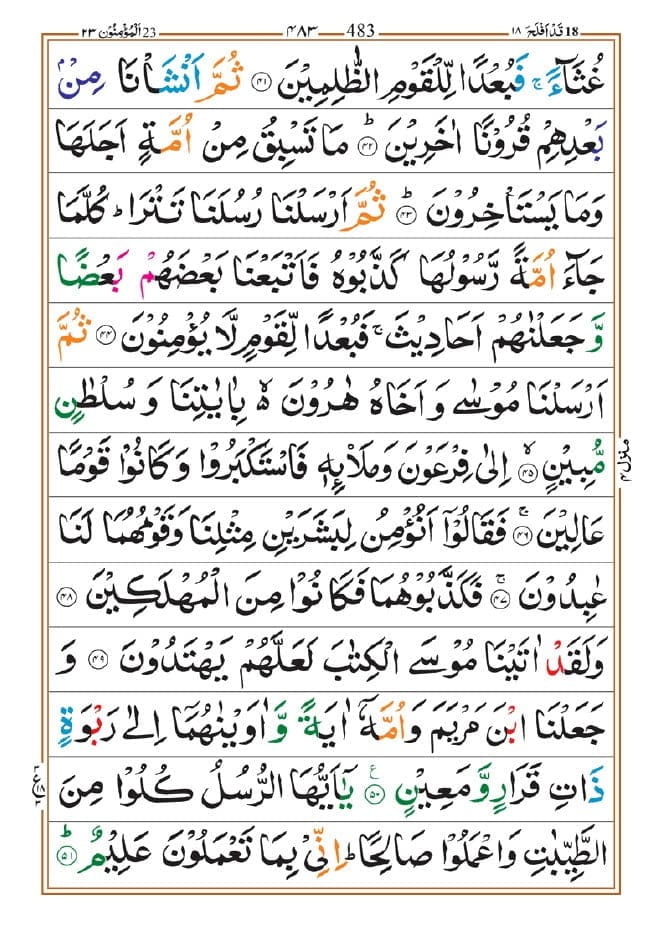 18 قَدْ اَفْلَحَ ١٨ 483 ٤٨٣ 23 اَلْمُؤْمِنُوْن ٢٣
غُثَآءً ۚ فَبُعْدًا لِّلْقَوْمِ الظّٰلِمِيْنَ ﴿۴۱﴾ ثُمَّ اَنْشَاْنَا مِنْۢ
بَعْدِهِمْ قُرُوْنًا اٰخَرِيْنَ ﴿۴۲﴾ؕ مَا تَسْبِقُ مِنْ اُمَّةٍ اَجَلَهَا
وَمَا يَسْتَاْخِرُوْنَ ﴿۴۳﴾ؕ ثُمَّ اَرْسَلْنَا رُسُلَنَا تَتْرَا ؕ كُلَّمَا
جَآءَ اُمَّةً رَّسُوْلُهَا كَذَّبُوْهُ فَاَتْبَعْنَا بَعْضَهُمْ بَعْضًا
وَّ جَعَلْنٰهُمْ اَحَادِيْثَ ۚ فَبُعْدًا لِّقَوْمٍ لَّا يُؤْمِنُوْنَ ﴿۴۴﴾ ثُمَّ
اَرْسَلْنَا مُوْسٰى وَ اَخَاهُ هٰرُوْنَ ۙ۬ بِاٰيٰتِنَا وَ سُلْطٰنٍ
مُّبِيْنٍ ﴿۴۵﴾ۙ اِلٰى فِرْعَوْنَ وَمَلَا۟ئِهٖ فَاسْتَكْبَرُوْا وَ كَانُوْا قَوْمًا
عَالِيْنَ ﴿۴۶﴾ۚ فَقَالُوْۤا اَنُؤْمِنُ لِبَشَرَيْنِ مِثْلِنَا وَقَوْمُهُمَا لَنَا
عٰبِدُوْنَ ﴿۴۷﴾ۚ فَكَذَّبُوْهُمَا فَكَانُوْا مِنَ الْمُهْلَكِيْنَ ﴿۴۸﴾
وَلَقَدْ اٰتَيْنَا مُوْسَى الْكِتٰبَ لَعَلَّهُمْ يَهْتَدُوْنَ ﴿۴۹﴾ وَ
جَعَلْنَا ابْنَ مَرْيَمَ وَاُمَّهٗۤ اٰيَةً وَّ اٰوَيْنٰهُمَاۤ اِلٰى رَبْوَةٍ
ذَاتِ قَرَارٍ وَّ مَعِيْنٍ ﴿۵۰﴾ يٰۤاَيُّهَا الرُّسُلُ كُلُوْا مِنَ
الطَّيِّبٰتِ وَاعْمَلُوْا صَالِحًا ؕ اِنِّىْ بِمَا تَعْمَلُوْنَ عَلِيْمٌ ﴿۵۱﴾ؕ
منزل ۴